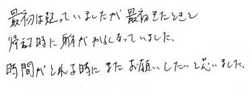 最初は っていましたが 最初きたときと
帰る時に 体がかるくなっていました。
時間がとれる時に また お願いしたいと思いました。